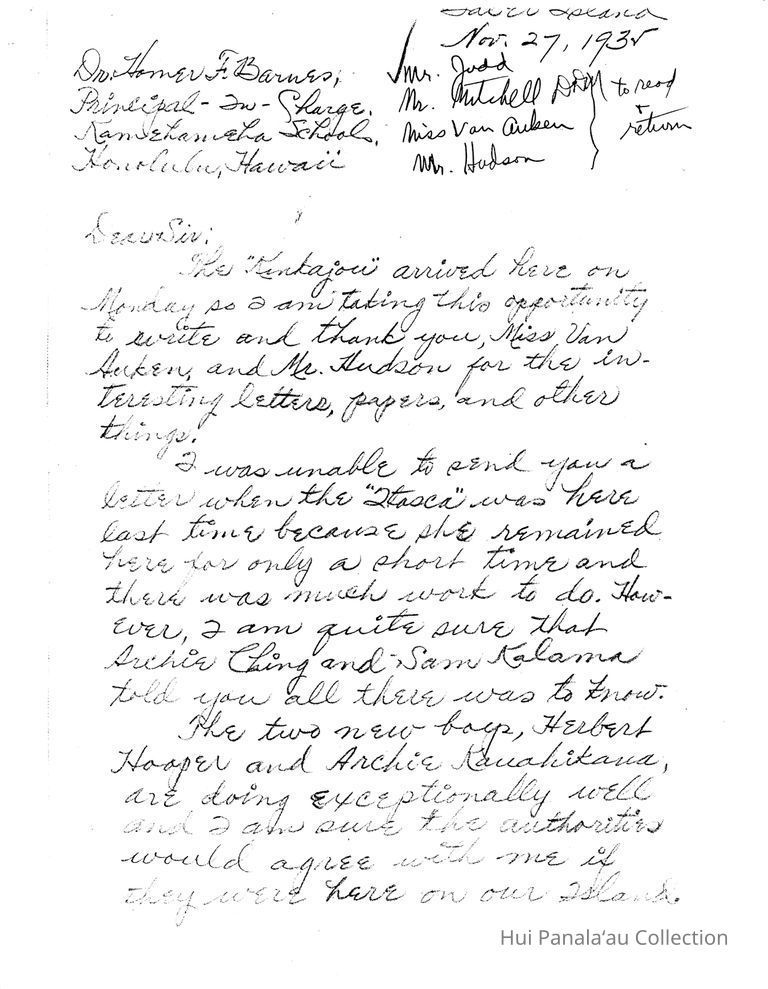 Island
Nov. 27, 1935
Dr. Homer F. Barnes,
Principal-In-Charge.
Kamehameha Schools.
Honolulu, Hawaii
✓ Mr. Judd
Mr. Mitchell
Miss Van Auken
Mr. Hudson
to read
+
return
Dear Sir:
The "Kinkajou" arrived here on
Monday so I am taking this opportunity
to write and thank you, Miss Van
Auken, and Mr. Hudson for the in-
teresting letters, papers, and other
things.
I was unable to send you a
letter when the "Itasca" was here
last time because she remained
here for only a short time and
there was much work to do. How-
ever, I am quite sure that
Archie Ching and Sam Kalama
told you all there was to know.
The two new boys, Herbert
Hooper and Archie Kauahikaua,
are doing exceptionally well
and I am sure the authorities
would agree with me if
they were here on our Island.
Hui Panala‘au Collection